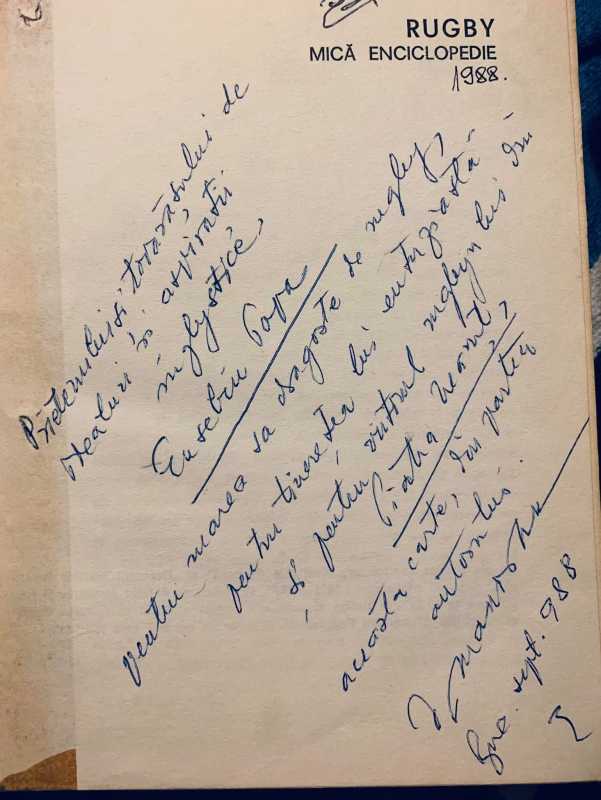 RUGBY
MICĂ ENCICLOPEDIE
1988.
Prietenului și tovarășului de
idealuri și aspirații
rugbystice,
Eusebiu Popa
pentru marea sa dragoste de rugby,
pentru tinerețea lui entuziastă
și pentru viitorul rugbyului din
Piatra Neamț,
această carte, din partea
autorului.
Buc. sept. 988